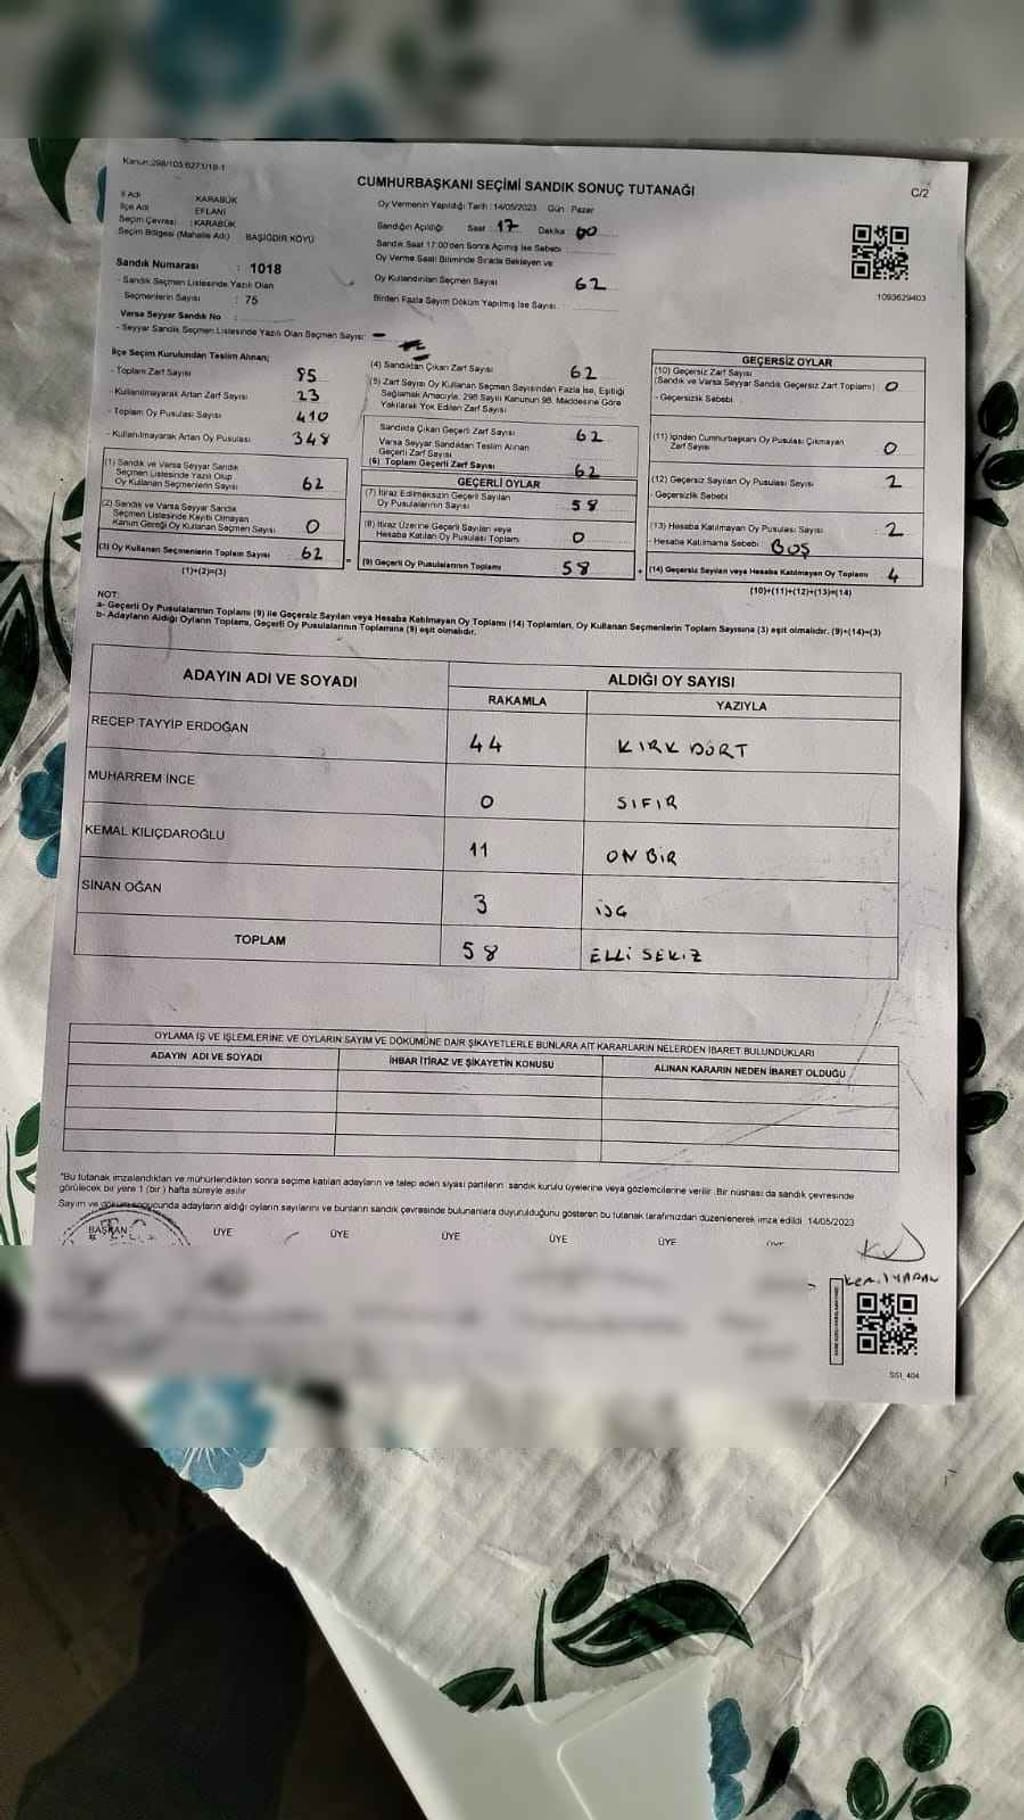 Kanun:298/103 6271/19-1
C/2
CUMHURBAŞKANI SEÇİMİ SANDIK SONUÇ TUTANAĞI
Oy Vermenin Yapıldığı Tarih : 14/05/2023 Gün : Pazar
İl Adı KARABÜK
İlçe Adı EFLANİ
Seçim Çevresi : KARABÜK
Seçim Bölgesi (Mahalle Adı) BAŞİĞDİR KÖYÜ
Sandık Numarası : 1018
- Sandık Seçmen Listesinde Yazılı Olan
Seçmenlerin Sayısı : 75
Varsa Seyyar Sandık No :
- Seyyar Sandık Seçmen Listesinde Yazılı Olan Seçmen Sayısı: -
Sandığın Açıldığı Saat 17 Dakika 00
Sandık Saat 17:00'den Sonra Açılmış İse Sebebi
Oy Verme Saati Bitiminde Sırada Bekleyen ve
Oy Kullandırılan Seçmen Sayısı 62
Birden Fazla Sayım Döküm Yapılmış İse Sayısı
1093629403
İlçe Seçim Kurulundan Teslim Alınan;
- Toplam Zarf Sayısı 85
- Kullanılmayarak Artan Zarf Sayısı 23
- Toplam Oy Pusulası Sayısı 410
- Kullanılmayarak Artan Oy Pusulası 348
(1) Sandık ve Varsa Seyyar Sandık
Seçmen Listesinde Yazılı Olup
Oy Kullanan Seçmenlerin Sayısı 62
(2) Sandık ve Varsa Seyyar Sandık
Seçmen Listesinde Kayıtlı Olmayan
Kanun Gereği Oy Kullanan Seçmen Sayısı 0
(3) Oy Kullanan Seçmenlerin Toplam Sayısı 62
(1)+(2)=(3)
(4) Sandıktan Çıkan Zarf Sayısı 62
(5) Zarf Sayısı Oy Kullanan Seçmen Sayısından Fazla İse, Eşitliği
Sağlamak Amacıyla, 298 Sayılı Kanunun 98. Maddesine Göre
Yakılarak Yok Edilen Zarf Sayısı
Sandıkta Çıkan Geçerli Zarf Sayısı 62
Varsa Seyyar Sandıktan Teslim Alınan
Geçerli Zarf Sayısı
(6) Toplam Geçerli Zarf Sayısı 62
GEÇERLİ OYLAR
(7) İtiraz Edilmeksizin Geçerli Sayılan
Oy Pusulalarının Sayısı 58
(8) İtiraz Üzerine Geçerli Sayılan veya
Hesaba Katılan Oy Pusulası Toplamı 0
(9) Geçerli Oy Pusulalarının Toplamı 58
GEÇERSİZ OYLAR
(10) Geçersiz Zarf Sayısı
(Sandık ve Varsa Seyyar Sandık Geçersiz Zarf Toplamı) 0
- Geçersizlik Sebebi
(11) İçinden Cumhurbaşkanı Oy Pusulası Çıkmayan
Zarf Sayısı 0
(12) Geçersiz Sayılan Oy Pusulası Sayısı 2
- Geçersizlik Sebebi
(13) Hesaba Katılmayan Oy Pusulası Sayısı 2
- Hesaba Katılmama Sebebi BOŞ
(14) Geçersiz Sayılan veya Hesaba Katılmayan Oy Toplamı 4
(10)+(11)+(12)+(13)=(14)
NOT:
a- Geçerli Oy Pusulalarının Toplamı (9) ile Geçersiz Sayılan veya Hesaba Katılmayan Oy Toplamı (14) Toplamları, Oy Kullanan Seçmenlerin Toplam Sayısına (3) eşit olmalıdır. (9)+(14)=(3)
b- Adayların Aldığı Oyların Toplamı, Geçerli Oy Pusulalarının Toplamına (9) eşit olmalıdır.
ADAYIN ADI VE SOYADI
ALDIĞI OY SAYISI
RAKAMLA YAZIYLA
RECEP TAYYİP ERDOĞAN 44 KIRK DÖRT
MUHARREM İNCE 0 SIFIR
KEMAL KILIÇDAROĞLU 11 ON BİR
SİNAN OĞAN 3
TOPLAM 58 ELLİ SEKİZ
OYLAMA İŞ VE İŞLEMLERİNE VE OYLARIN SAYIM VE DÖKÜMÜNE DAİR ŞİKAYETLERLE BUNLARA AİT KARARLARIN NELERDEN İBARET BULUNDUKLARI
ADAYIN ADI VE SOYADI İHBAR İTİRAZ VE ŞİKAYETİN KONUSU ALINAN KARARIN NEDEN İBARET OLDUĞU
"Bu tutanak imzalandıktan ve mühürlendikten sonra seçime katılan adayların ve talep eden siyasi partilerin sandık kurulu üyelerine veya gözlemcilerine verilir. Bir nüshası da sandık çevresinde
görülecek bir yere 1 (bir) hafta süreyle asılır
Sayım ve döküm sonucunda adayların aldığı oyların sayılarını ve bunların sandık çevresinde bulunanlara duyurulduğunu gösteren bu tutanak tarafımızdan düzenlenerek imza edildi 14/05/2023
BAŞKAN ÜYE ÜYE ÜYE ÜYE ÜYE
SS1_404